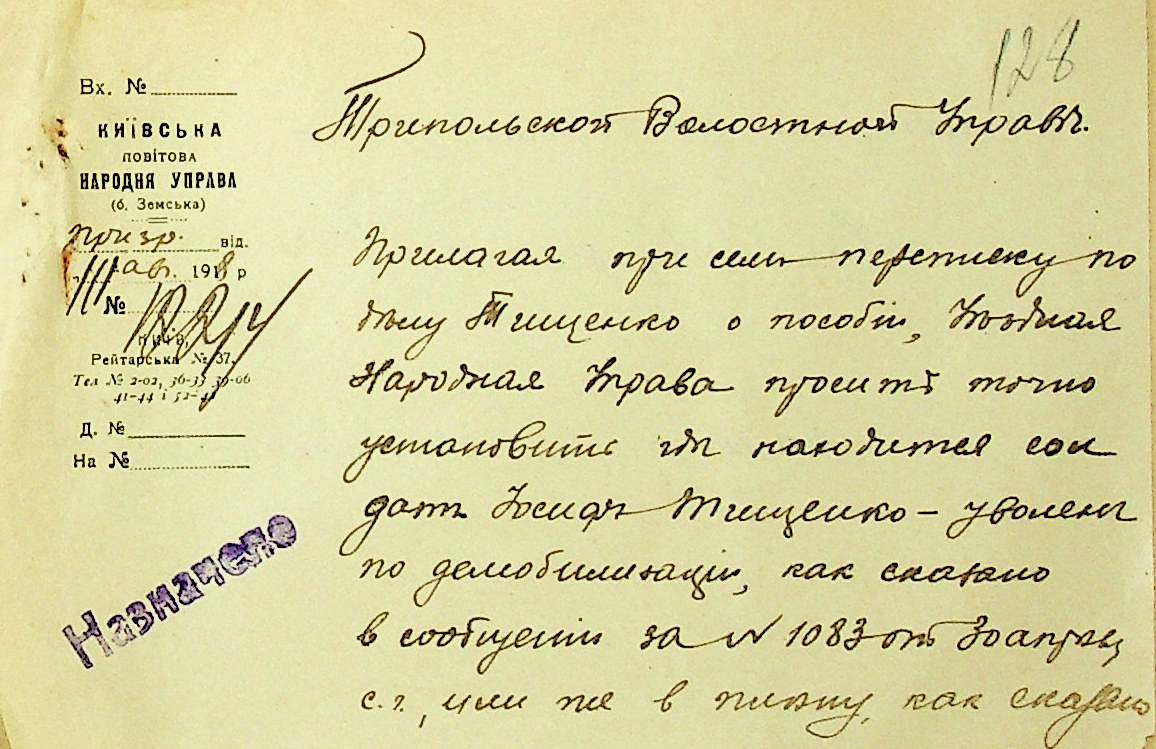 128
Вх. №
КИЇВСЬКА
ПОВІТОВА
НАРОДНЯ УПРАВА
(б. Земська)
призр. від.
авг. 1918 р
№
Рейтарська № 37.
Тел № 2-02, 36-33
41-44 і 52-41
Д. №
На №
Назначено
Трипольской Волостной Управѣ.
Прилагая при семъ переписку по
дѣлу Тищенко о пособіи, Уѣздная
Народная Управа проситъ точно
установить гдѣ находится сол
датъ Іосифъ Тищенко – уволенъ
по демобилизаціи, как сказано
в сообщеніи за N 1083 отъ 30 апрѣля
с. г., или же в плѣну, как сказано